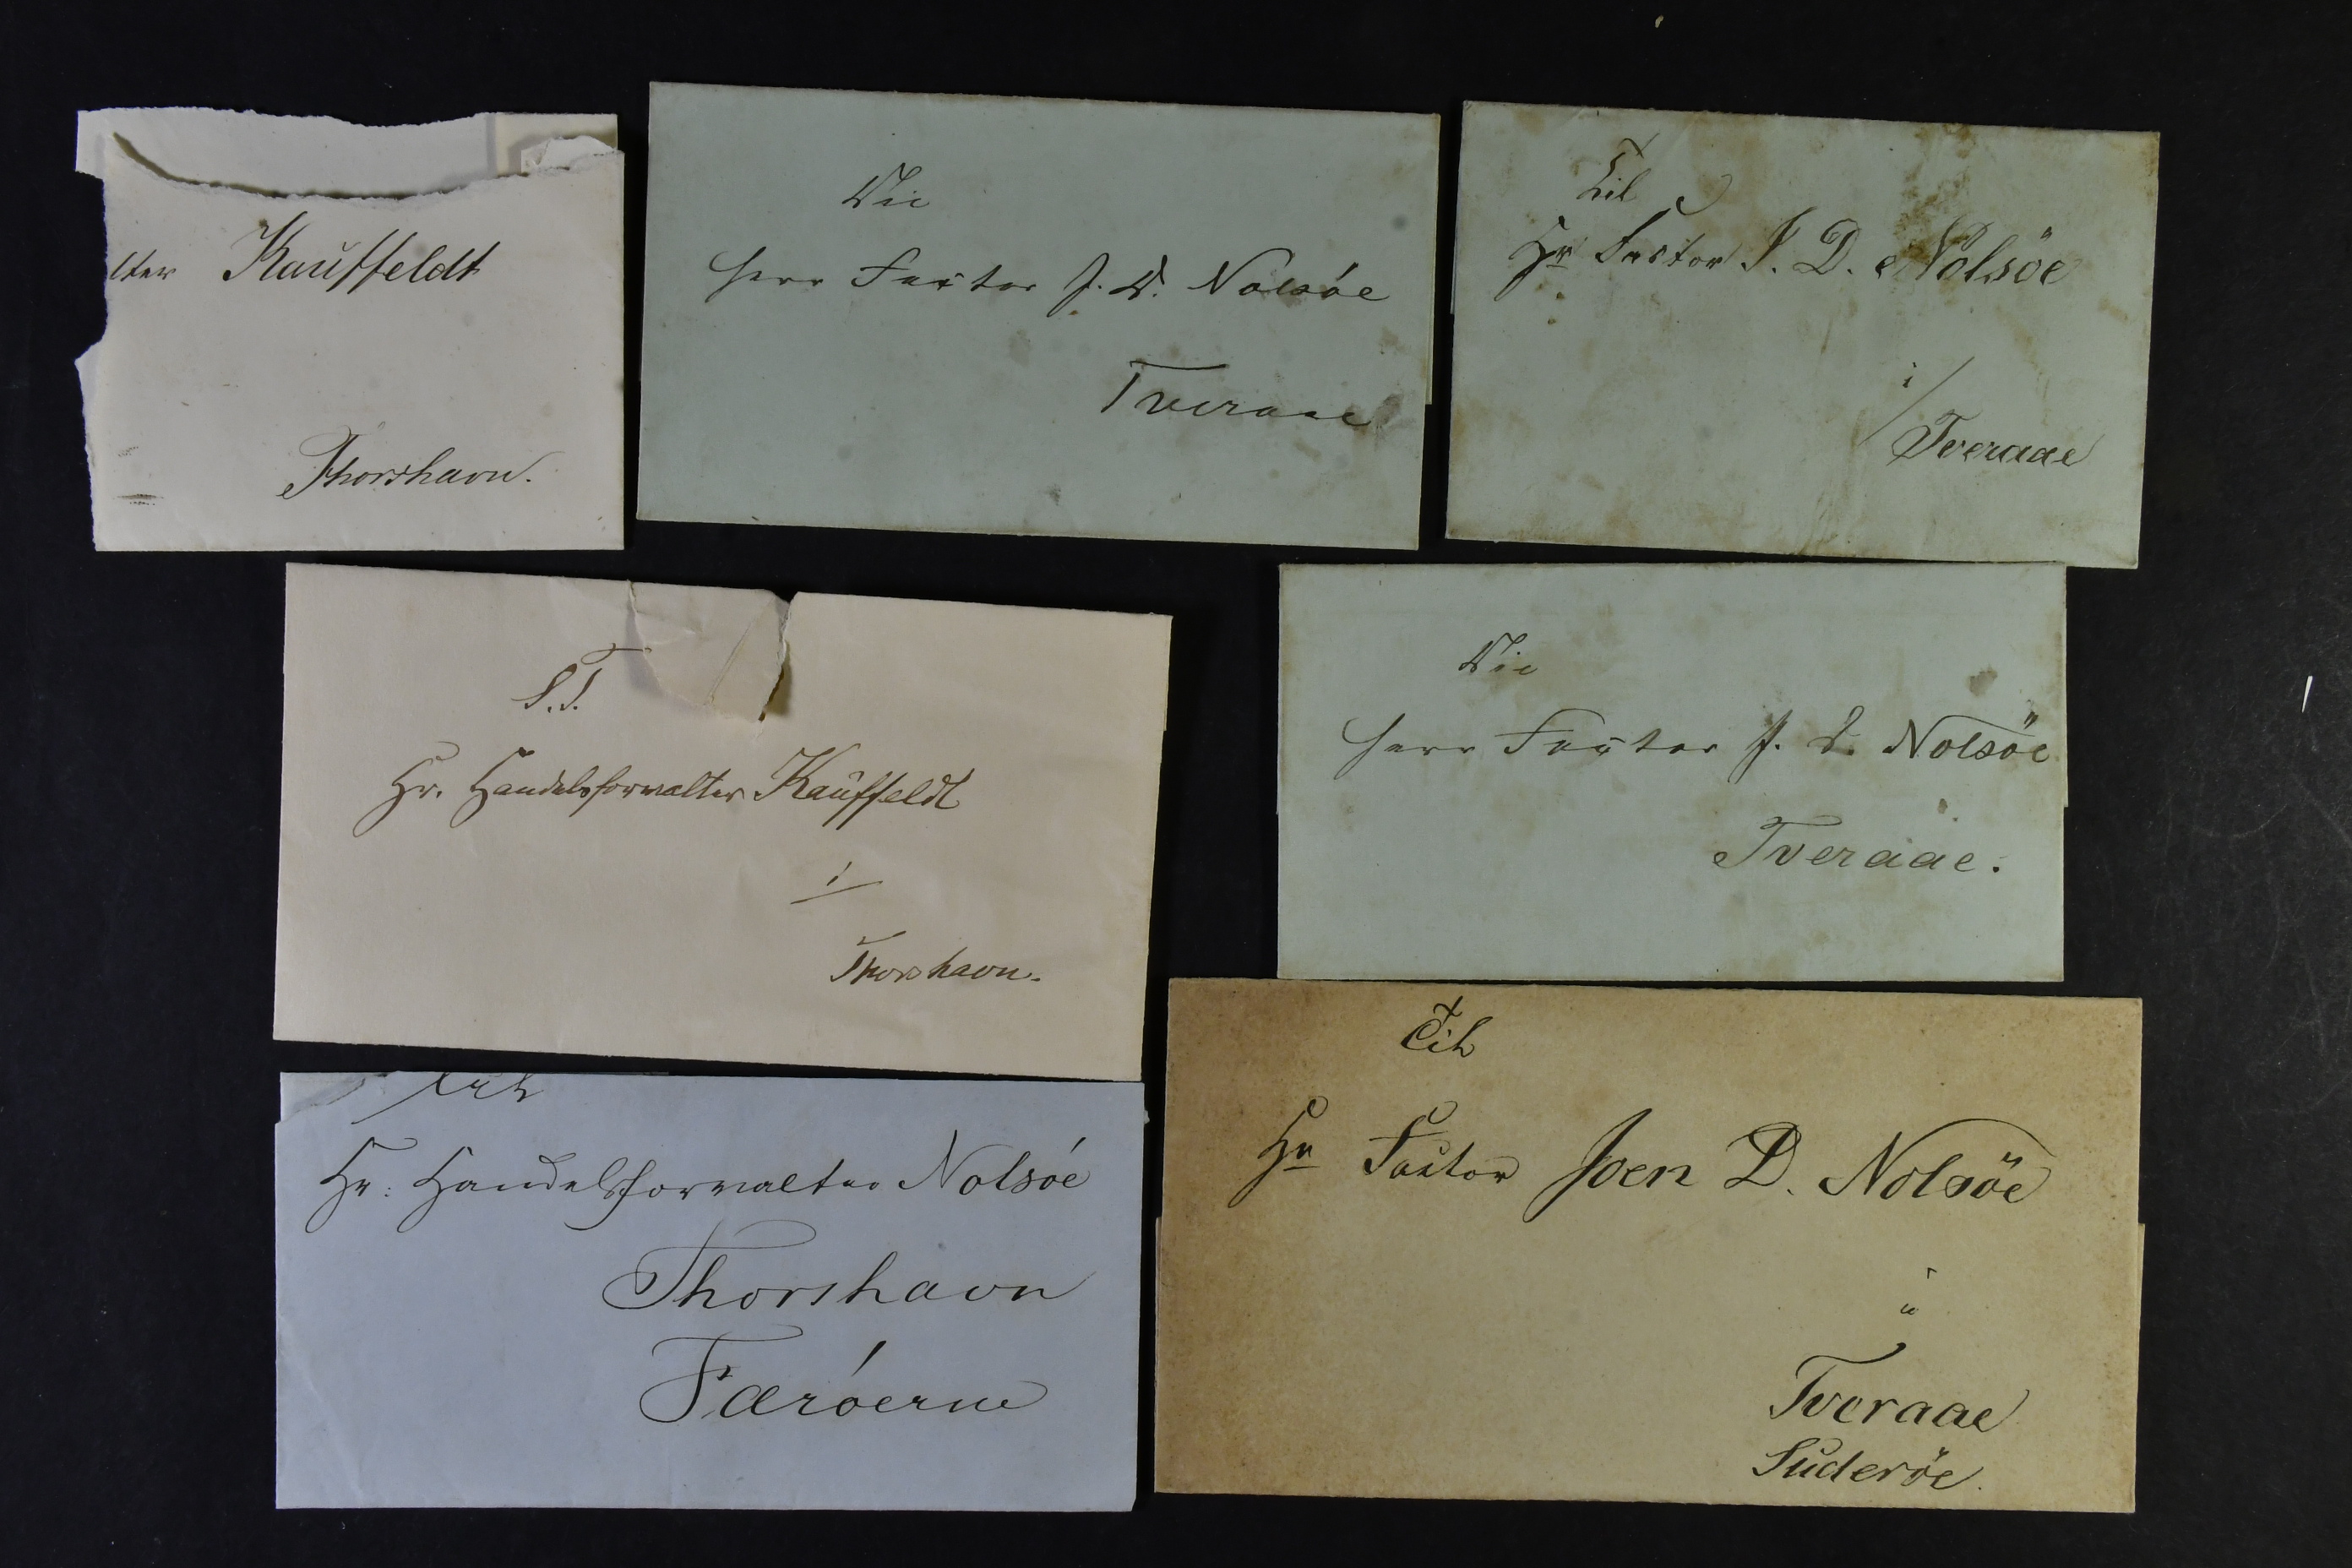 lter Kauffeldt
Thorshavn.
Til
Herr Factor J. D. Nolsóe
Tveraae
Til
Hr Factor J. D. Nolsöe
i/
Tveraae
S.T.
Hr. Handelsforvalter Kauffeldt
i
Thorshavn.
Til
Herr Factor J. D. Nolsöe
Tveraae.
Til
Hr: Handelsforvalter Nolsóe
Thorshavn
Færóerne
Til
Hr Factor Joen D. Nolsöe
i
Tveraae
Suderöe.